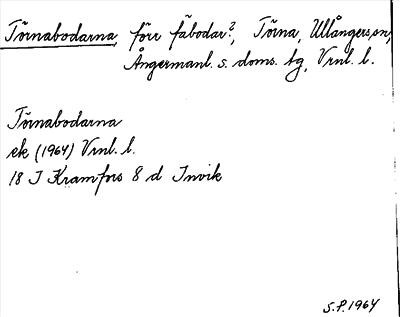 Törnabodarna, förr fäbodar?, Törna, Ullångers sn,
Ångermanl. s. doms. tg, Vrnl. l.
Törnabodarna
ek (1964) Vrnl. l.
18 J Kramfors 8 d Invik
S.P. 1964